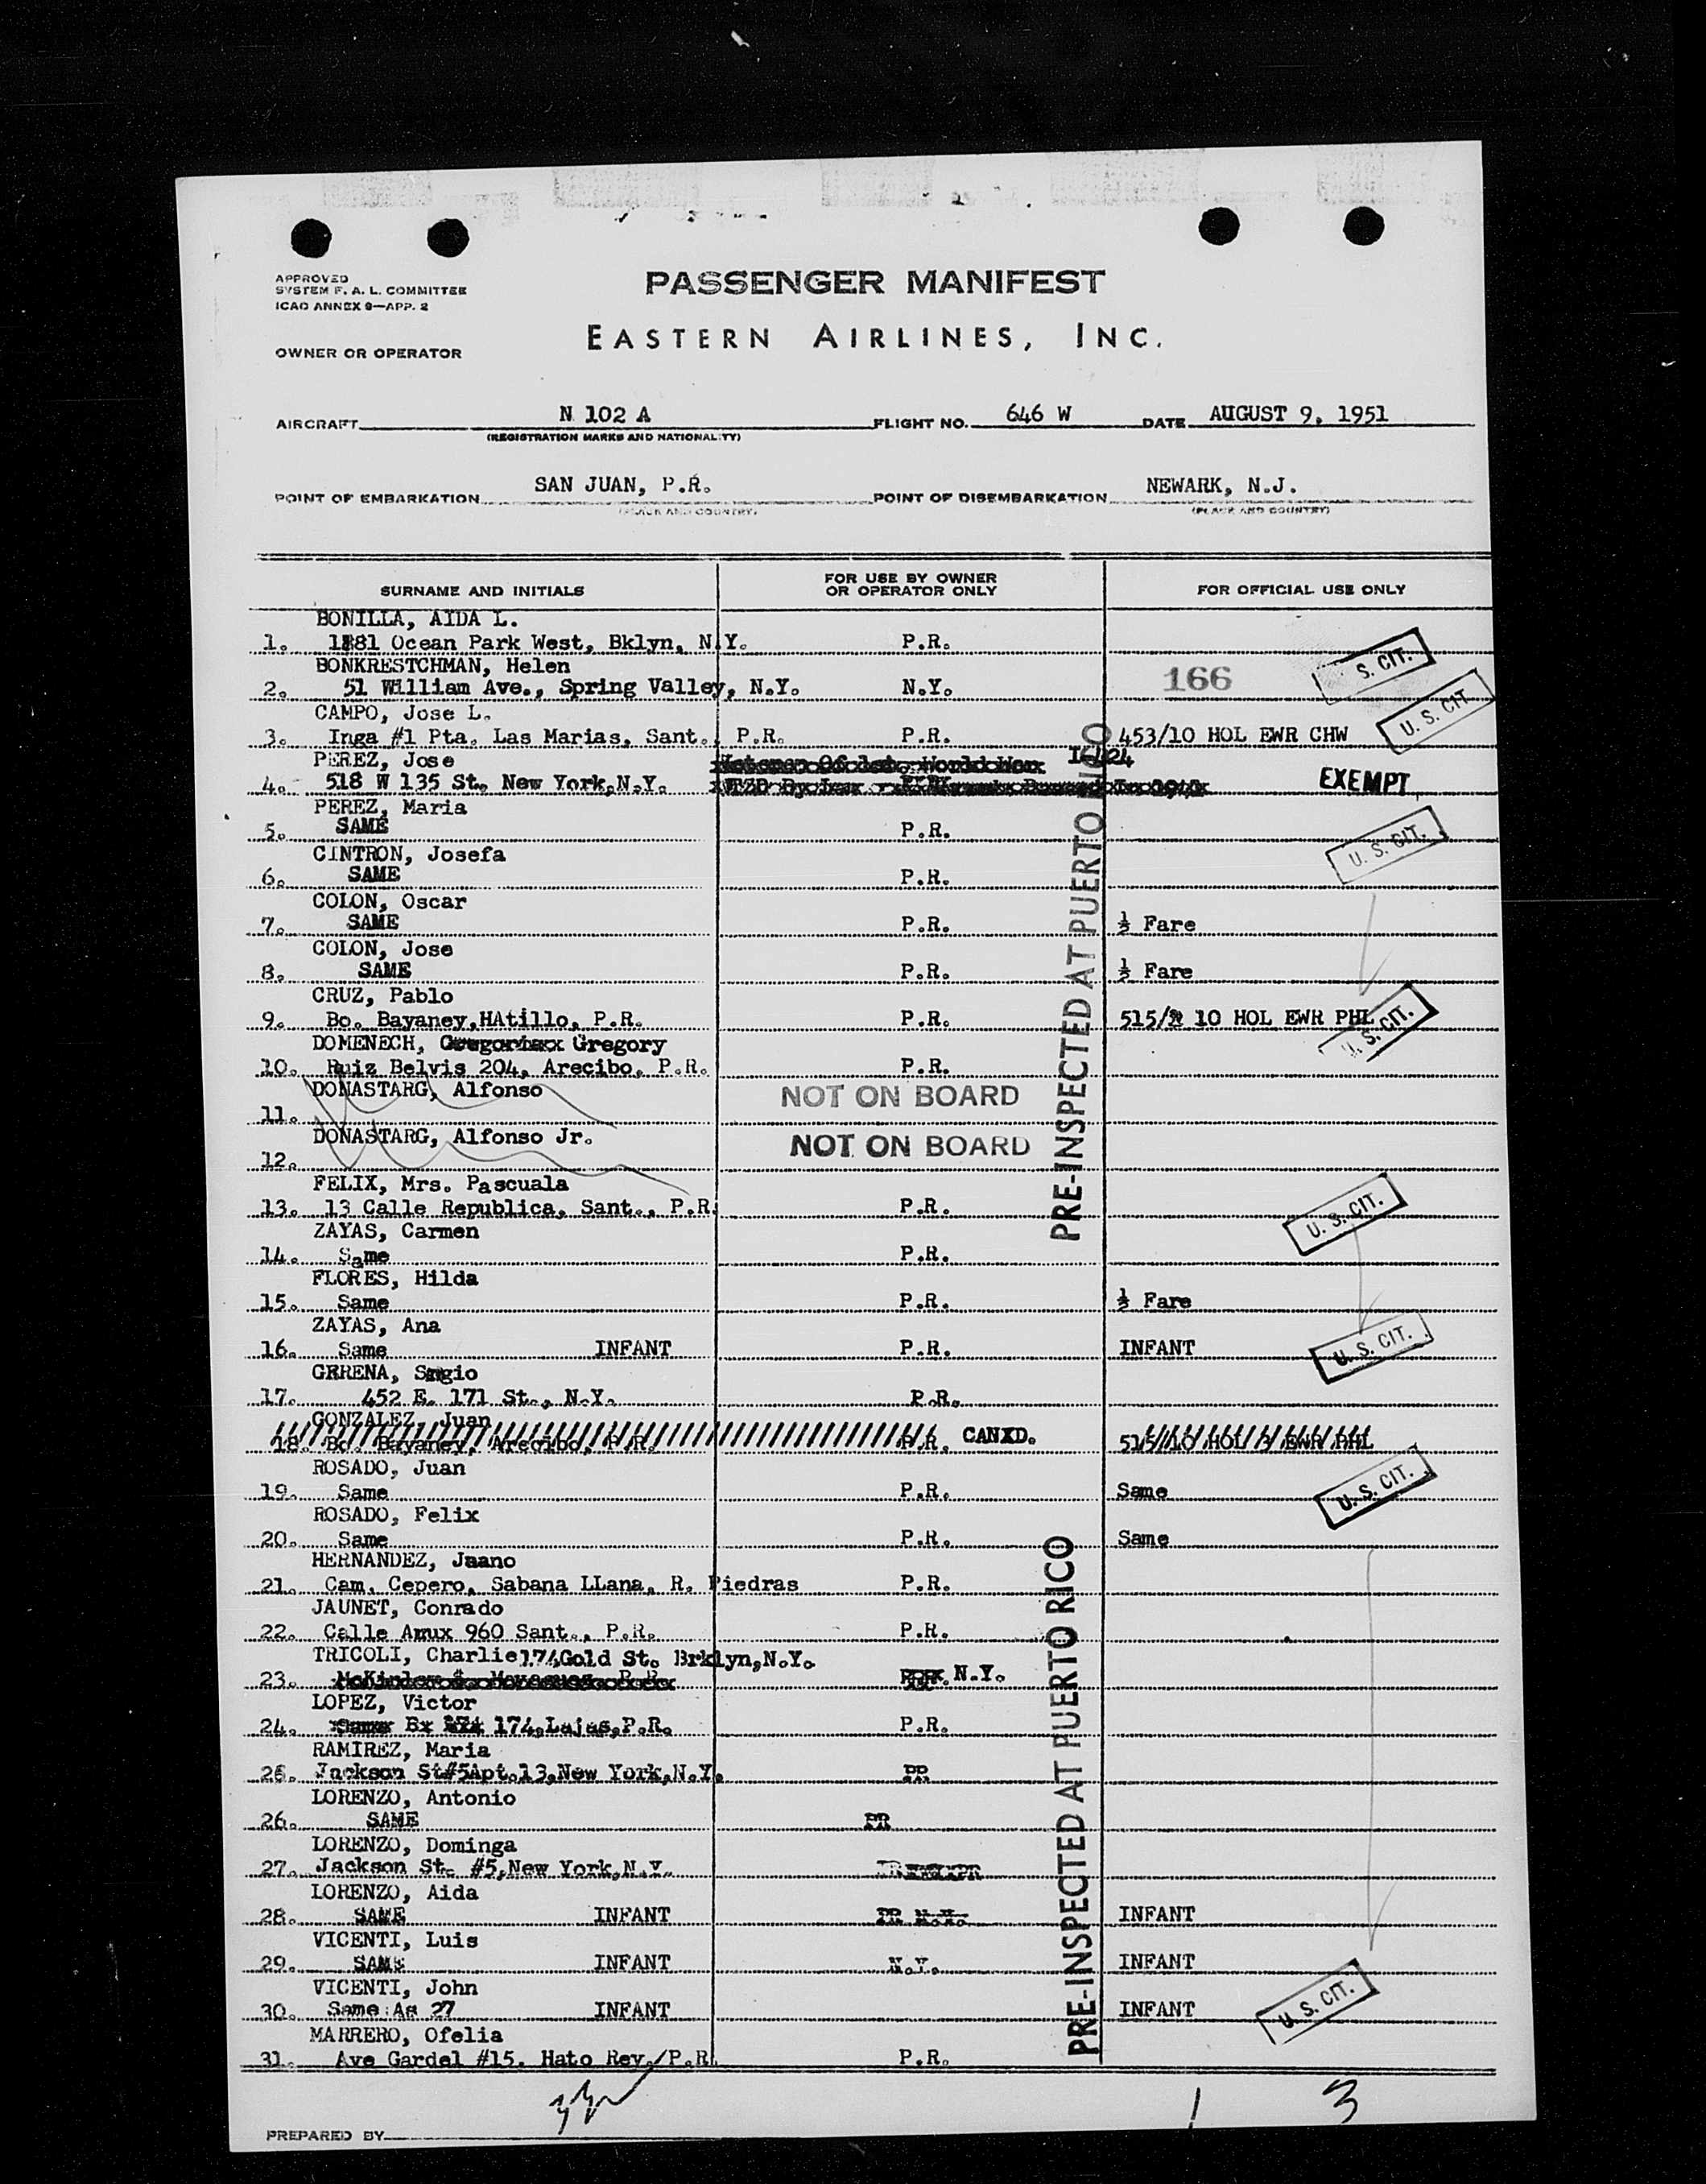 APPROVED
SYSTEM F. A. L. COMMITTEE
ICAO ANNEX 9—APP. 2
PASSENGER MANIFEST
EASTERN AIRLINES, INC.
OWNER OR OPERATOR
AIRCRAFT N 102 A FLIGHT NO. 646 W DATE AUGUST 9, 1951
(REGISTRATION MARKS AND NATIONALITY)
POINT OF EMBARKATION SAN JUAN, P.R. POINT OF DISEMBARKATION NEWARK, N.J.
(PLACE AND COUNTRY) (PLACE AND COUNTRY)
SURNAME AND INITIALS FOR USE BY OWNER OR OPERATOR ONLY FOR OFFICIAL USE ONLY
BONILLA, AIDA L.
1. 1881 Ocean Park West, Bklyn, N.Y. P.R.
S. CIT.
BONKRESTCHMAN, Helen
2. 51 William Ave., Spring Valley, N.Y. N.Y. 166
CAMPO, Jose L.
U. S. CIT.
3. Inga #1 Pta. Las Marias, Sant., P.R. P.R. 453/10 HOL EWR CHW
PEREZ, Jose
4. 518 W 135 St. New York,N.Y. EXEMPT
PEREZ, Maria
5. SAME P.R.
U. S. CIT.
CINTRON, Josefa
6. SAME P.R.
COLON, Oscar
7. SAME P.R. ½ Fare
COLON, Jose
8. SAME P.R. ½ Fare
CRUZ, Pablo
9. Bo. Bayaney,HAtillo, P.R. P.R. 515/ 10 HOL EWR PHL
U. S. CIT.
DOMENECH, Gregory
10. Ruiz Belvis 204, Arecibo, P.R. P.R.
DONASTARG, Alfonso NOT ON BOARD
11.
DONASTARG, Alfonso Jr. NOT ON BOARD
12.
PRE-INSPECTED AT PUERTO RICO
FELIX, Mrs. Pascuala
13. 13 Calle Republica, Sant., P.R. P.R.
U. S. CIT.
ZAYAS, Carmen
14. Same P.R.
FLORES, Hilda
15. Same P.R. ½ Fare
ZAYAS, Ana
16. Same INFANT P.R. INFANT
U. S. CIT.
GERENA, Sergio
17. 452 E. 171 St., N.Y. P.R.
GONZALEZ, Juan
18. Bo. Bayaney, Arecibo, P.R. P.R. CANXD. 515/10 HOL EWR PHL
ROSADO, Juan
19. Same P.R. Same
U. S. CIT.
ROSADO, Felix
20. Same P.R. Same
HERNANDEZ, Juano
21. Cam. Cepero, Sabana LLana, R. Piedras P.R.
JAUNET, Conrado
22. Calle Amux 960 Sant., P.R. P.R.
TRICOLI, Charlie 174 Gold St. Brklyn,N.Y.
23. N.Y.
LOPEZ, Victor
24. Bx 174,Lajas,P.R. P.R.
RAMIREZ, Maria
25. Jackson St#5Apt.13,New York,N.Y. PR
LORENZO, Antonio
26. SAME PR
LORENZO, Dominga
27. Jackson St. #5,New York,N.Y.
LORENZO, Aida
28. SAME INFANT PR INFANT
VICENTI, Luis
29. SAME INFANT N.Y. INFANT
VICENTI, John
30. Same As 27 INFANT INFANT
U. S. CIT.
MARRERO, Ofelia
31. Ave Gardel #15. Hato Rey./P.R. P.R.
PRE-INSPECTED AT PUERTO RICO
1 3
PREPARED BY